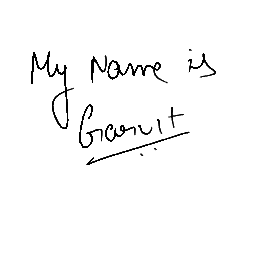 My Name is
Garvit